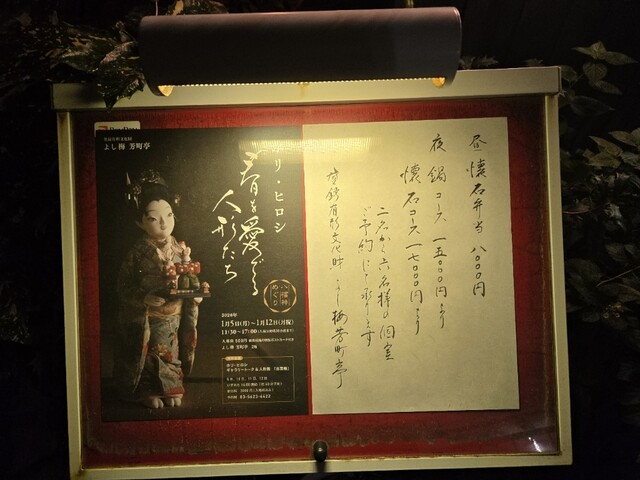 よし梅 芳町亭
リ・ヒロシ
春を愛でる
人形たち
八福神
めぐり
1月5日(月)~1月12日(月祝)
11:30~17:00
よし梅 芳町亭
昼 懐石弁当 八〇〇〇円
夜 鍋コース 一五〇〇〇円より
懐石コース 一七〇〇〇円より
二名から六名様の個室
ご予約にて承ります
登録有形文化財 よし梅芳町亭